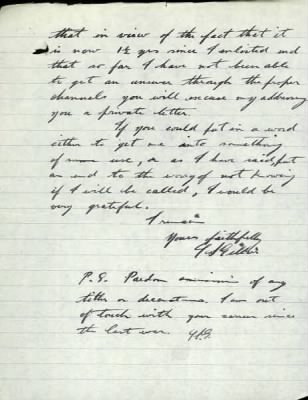 that in view of the fact that it
is now 1½ yrs since I enlisted and
that so far I have not been able
to get an answer through the proper
channels you will excuse my addressing
you a private letter.
If you could put in a word
either to get me into something
of more use, or as I have said, put
an end to the worry of not knowing
if I will be called, I would be
very grateful.
I remain
Yours faithfully
P.S. Pardon omission of any
titles or decorations. I am out
of touch with your career since
the last war.